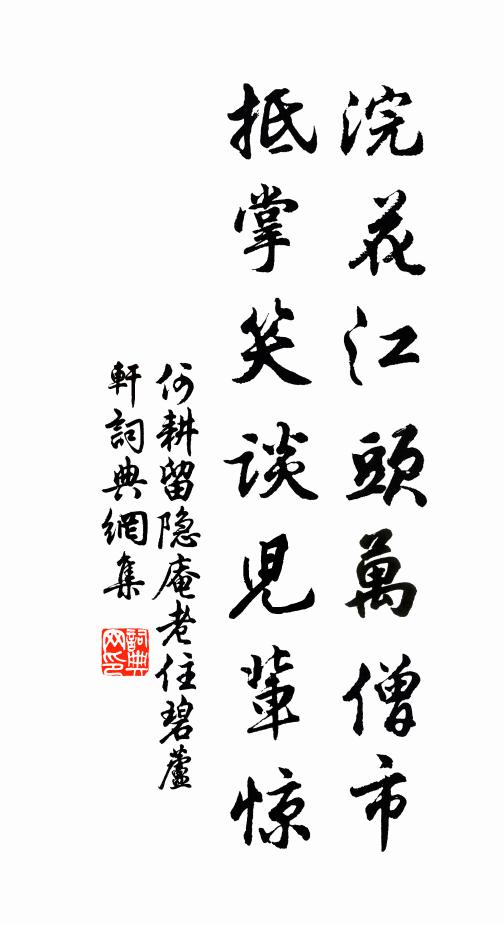 浣花江頭萬僧市
抵掌笑談児輩惊
何耕留隐庵老住碧蘆
軒詞典網集
詞典
网印